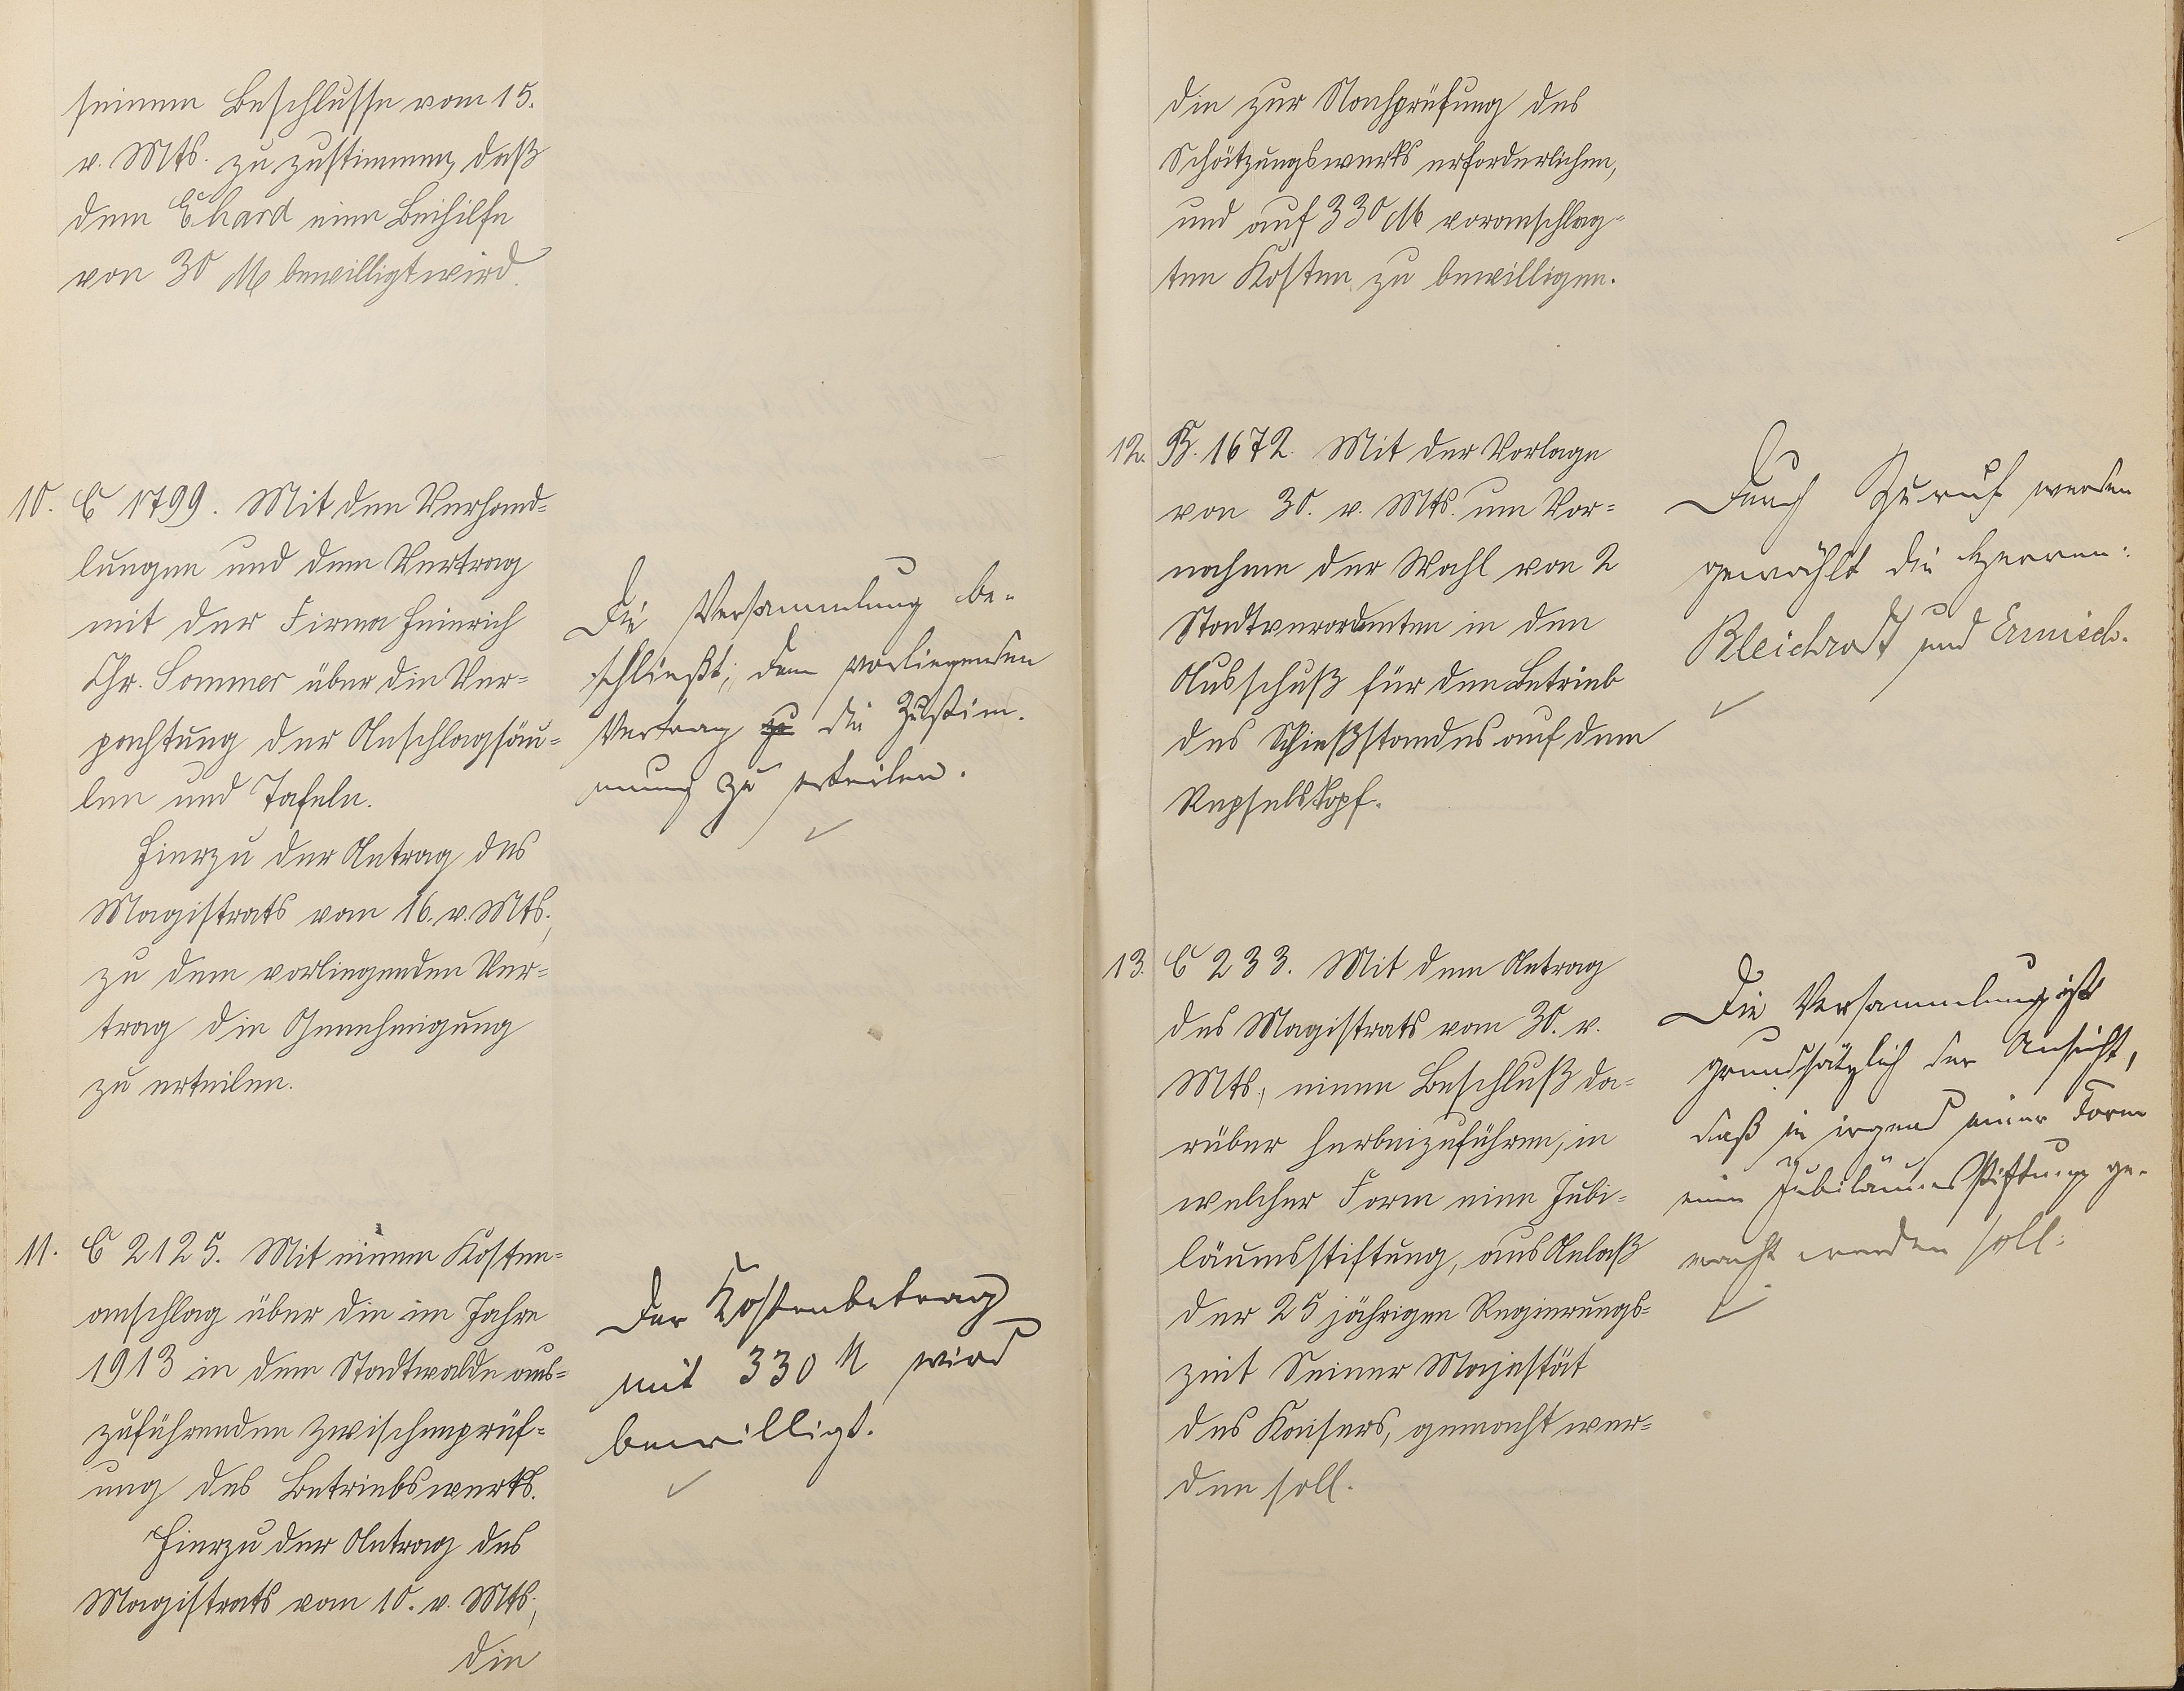 seinem Beschlusse vom 15.
v. Mts. zu zustimmen, daß
dem Ehard eine Beihilfe
von 30 M bewilligt wird.
10. C 1799. Mit den Verhand-
lungen und dem Vertrag
mit der Firma Heinrich
Chr. Sommer über die Ver-
pachtung der Anschlagsäu-
len und Tafeln.
Hierzu der Antrag des
Magistrats vom 16. v. Mts.,
zu dem vorliegenden Ver-
trag die Genehmigung
zu erteilen.
Die Versammlung be-
schließt, dem vorliegenden
Vertrag zu die Zustim-
mung zu erteilen.
11. C 2125. Mit einem Kosten-
anschlag über die im Jahre
1913 in dem Stadtwalde aus-
zuführenden Zwischenprüf-
ung des Betriebswerks.
Hierzu der Antrag des
Magistrats vom 10. v. Mts.,
die
Der Kostenbetrag
mit 330 M wird
bewilligt.
die zur Nachprüfung des
Schätzungswerks erforderlichen,
und auf 330 M voranschlag-
ten Kosten zu bewilligen.
12. B. 1672. Mit der Vorlage
von 30. v. Mts. um Vor-
nahme der Wahl von 2
Stadtverordneten in den
Ausschuß für den Betrieb
des Schießstandes auf dem
Repselskopf.
Durch Zuruf werden
gewählt die Herren:
Bleichrodt und Ermisch.
13. C 233. Mit dem Antrag
des Magistrats vom 30. v.
Mts., einen Beschluß da-
rüber herbeizuführen, in
welcher Form eine Jubi-
läumsstiftung, aus Anlaß
der 25 jährigen Regierungs-
zeit Seiner Majestät
des Kaisers, gemacht wer-
den soll.
Die Versammlung ist
grundsätzlich der Ansicht,
daß in irgend einer Form
eine Jubiläums Stiftung ge-
macht werden soll.